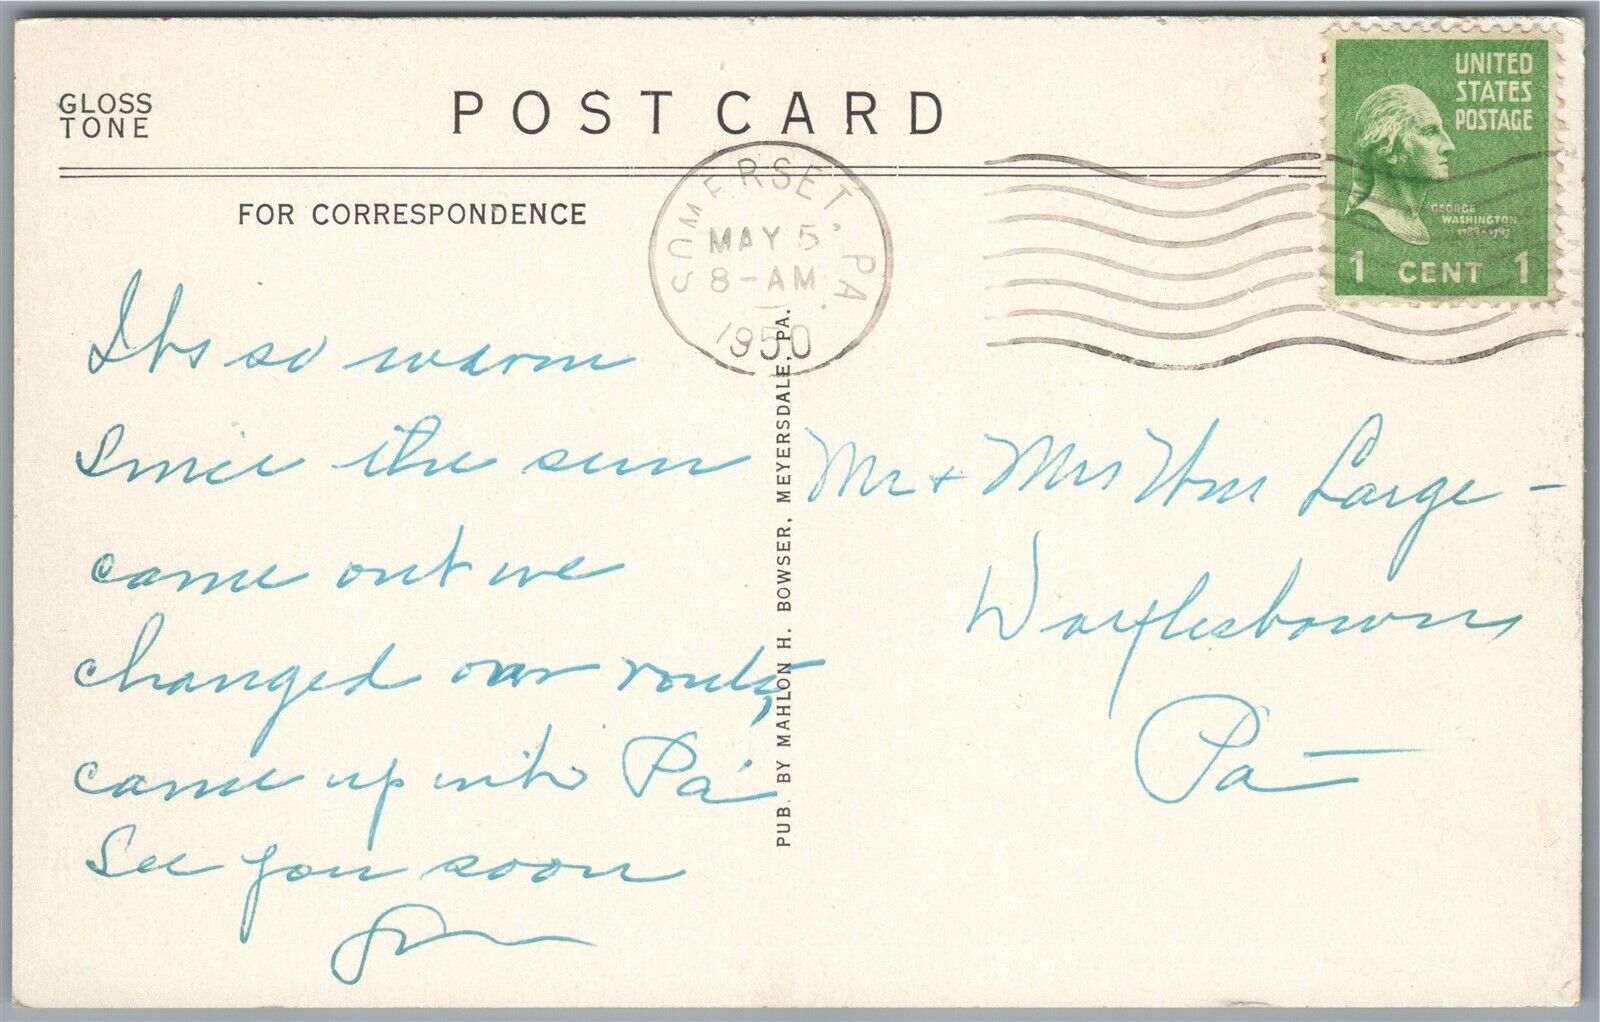 GLOSS
TONE
POST CARD
FOR CORRESPONDENCE
SOMERSET, PA.
MAY 5
8-AM
1950
UNITED
STATES
POSTAGE
GEORGE
WASHINGTON
1789-1797
1 CENT 1
Its so warm
Since the sun
came out we
changed our route,
came up into Pa
See you soon
PUB. BY MAHLON H. BOWSER, MEYERSDALE, PA.
Mr + Mrs Wm Large -
Pa -